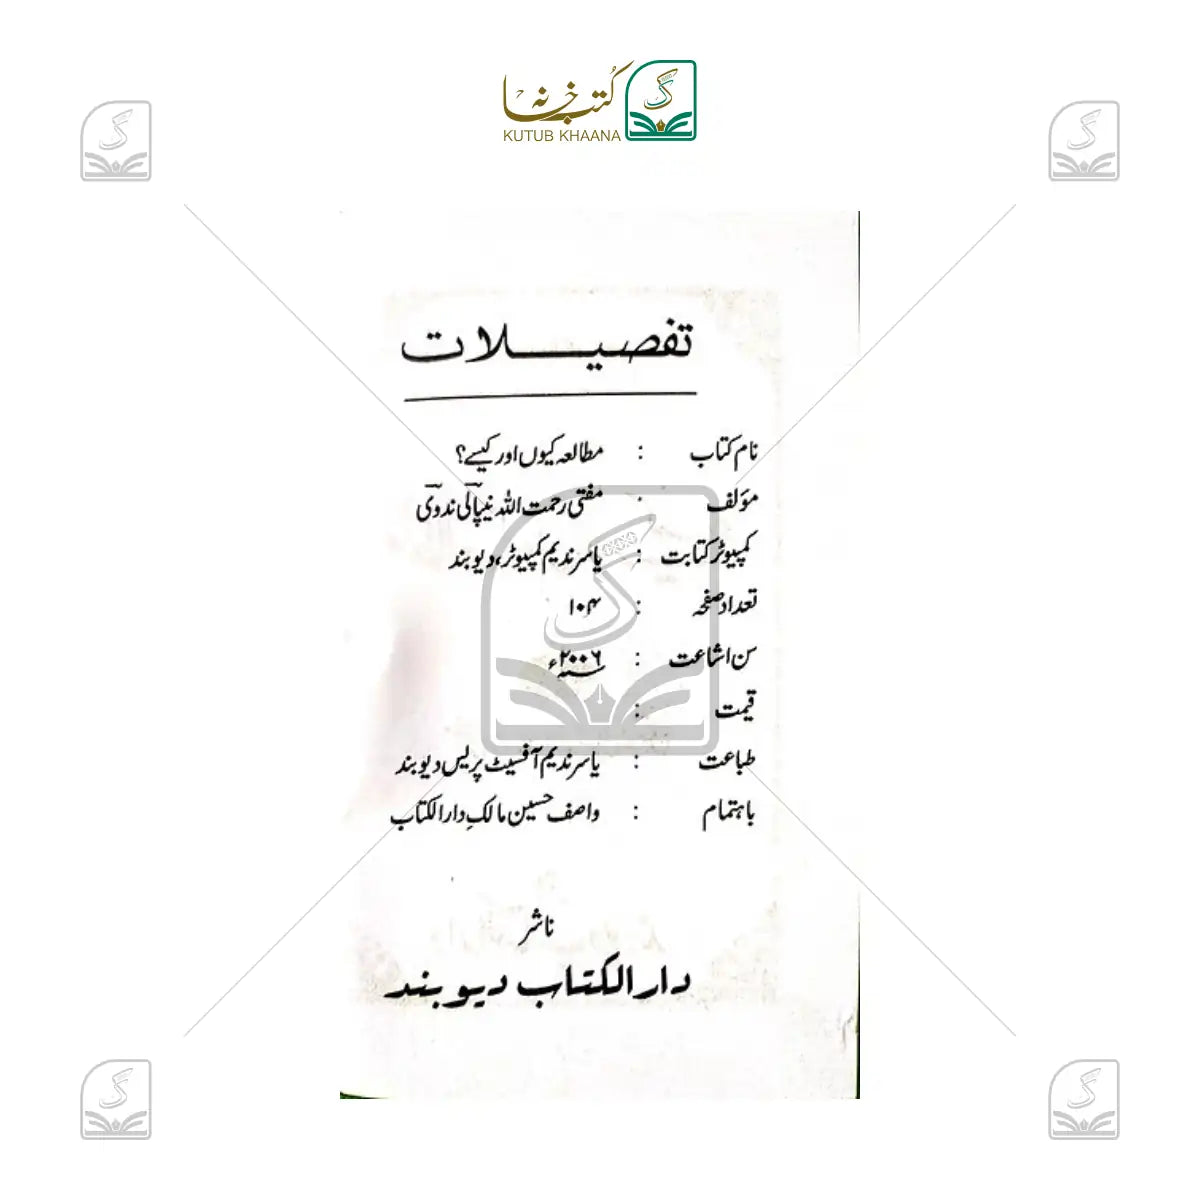 کتب خانہ
KUTUB KHAANA
تفصیلات
نام کتاب : مطالعہ کیوں اور کیسے؟
مؤلف : مفتی رحمت اللہ نیپالی ندوی
کمپیوٹر کتابت : یاسر ندیم کمپیوٹر، دیوبند
تعداد صفحہ : ۱۰۴
سن اشاعت : ۲۰۰۶ء
قیمت :
طباعت : یاسر ندیم آفسیٹ پریس دیوبند
باہتمام : واصف حسین مالکِ دارالکتاب
ناشر
دارالکتاب دیوبند